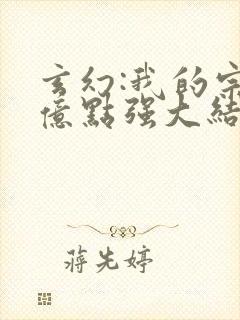 玄幻:我的宗
億點强大結
蔣先婷